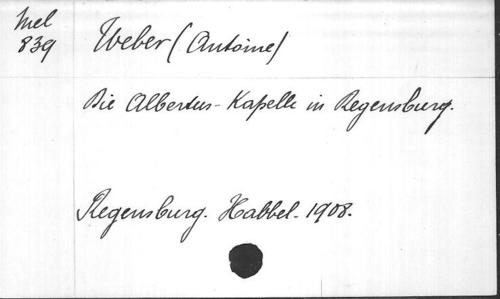 Mel
839
Weber (Antoine)
Die Albertus-Kapelle in Regensburg.
Regensburg. Habbel. 1908.